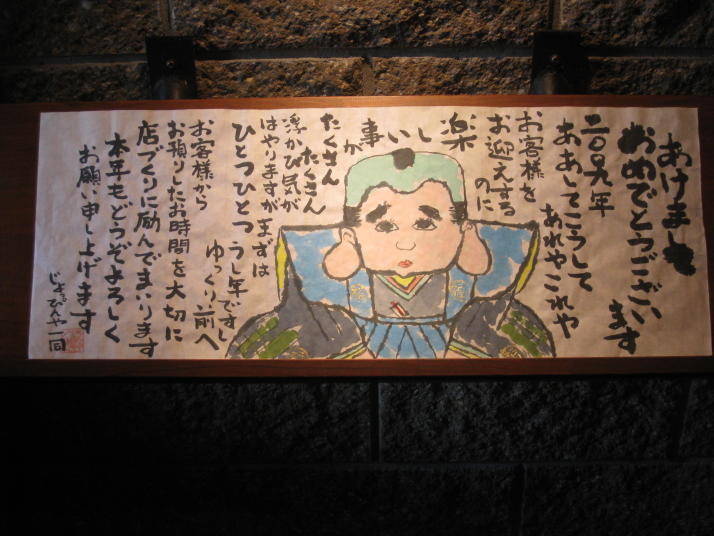 あけまして
おめでとうござい
ます
二〇〇九年
ああしてこうして
あれやこれや
お客様を
お迎えする
のに
楽しい事が
たくさん
たくさん
浮かび気が
はやりますがまずは
ひとつひとつ
うし年ですし
ゆっくり前へ
お客様から
お預りしたお時間を大切に
店づくりに励んでまいります
本年もどうぞよろしく
お願い申し上げます
じょびんや一同